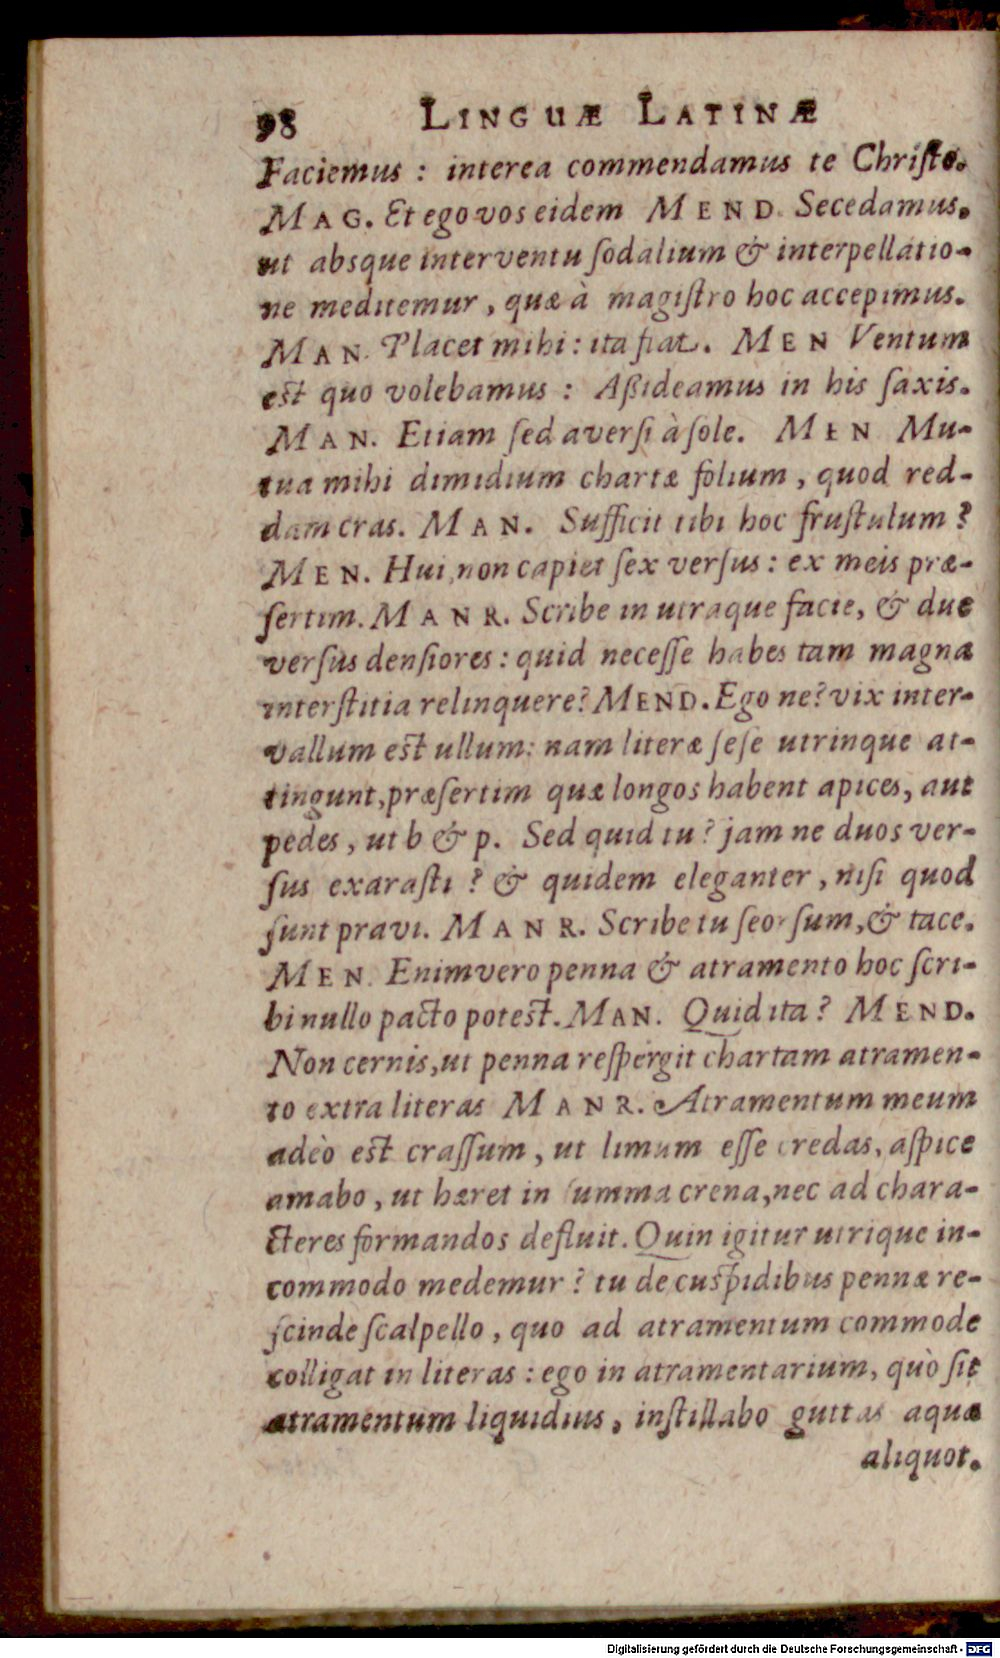 98 LINGUÆ LATINÆ
Faciemus : interea commendamus te Chriſto.
MAG. Et ego vos eidem MEND. Secedamus.
ut absque interventu ſodalium & interpellatio-
ne meditemur, quæ à magiſtro hoc accepimus.
MAN. Placet mihi: ita fiat. MEN Ventum
eſt quo volebamus : Aßideamus in his ſaxis.
MAN. Etiam ſed averſi à ſole. MEN Mu-
tua mihi dimidium chartæ folium, quod red-
dam cras. MAN. Sufficit tibi hoc fruſtulum?
MEN. Hui, non capiet ſex verſus: ex meis præ-
ſertim. MANR. Scribe in utraque facie, & duc
verſus denſiores: quid neceſſe habes tam magna
interſtitia relinquere? MEND. Ego ne? vix inter-
vallum eſt ullum: nam literæ ſeſe utrinque at-
tingunt, præſertim quæ longos habent apices, aut
pedes, ut b & p. Sed quid tu? jam ne duos ver-
ſus exaraſti ? & quidem eleganter, niſi quod
ſunt pravi. MANR. Scribe tu ſeorſum, & tace.
MEN. Enimvero penna & atramento hoc ſcri-
bi nullo pacto poteſt. MAN. Quid ita? MEND.
Non cernis, ut penna reſpergit chartam atramen-
to extra literas MANR. Atramentum meum
adeò eſt craſſum, ut limum eſſe credas, aſpice
amabo, ut hæret in ſumma crena, nec ad chara-
cteres formandos defluit. Quin igitur utrique in-
commodo medemur? tu de cuſpidibus pennæ re-
ſcinde ſcalpello, quo ad atramentum commode
colligat in literas: ego in atramentarium, quò ſit
atramentum liquidius, inſtillabo guttas aquæ
aliquot.
Digitalisierung gefördert durch die Deutsche Forschungsgemeinschaft - DFG